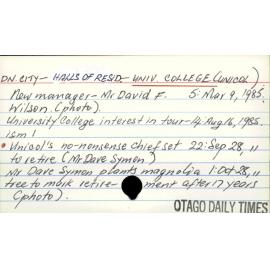 DN. CITY- HALLS OF RESID- UNIV. COLLEGE (UNICOL)
New manager- Mr David F. 5: Mar 9, 1985
Wilson. (photo).
University College interest in tour- 14 Aug 16, 1985
ism 1
• Unicol's no-nonsense chief set 22: Sep 28, "
to retire (Mr Dave Symon)
Mr Dave Symon plants magnolia 1: Oct 28, "
tree to mark retire- ment after 17 years
(photo).
OTAGO DAILY TIMES